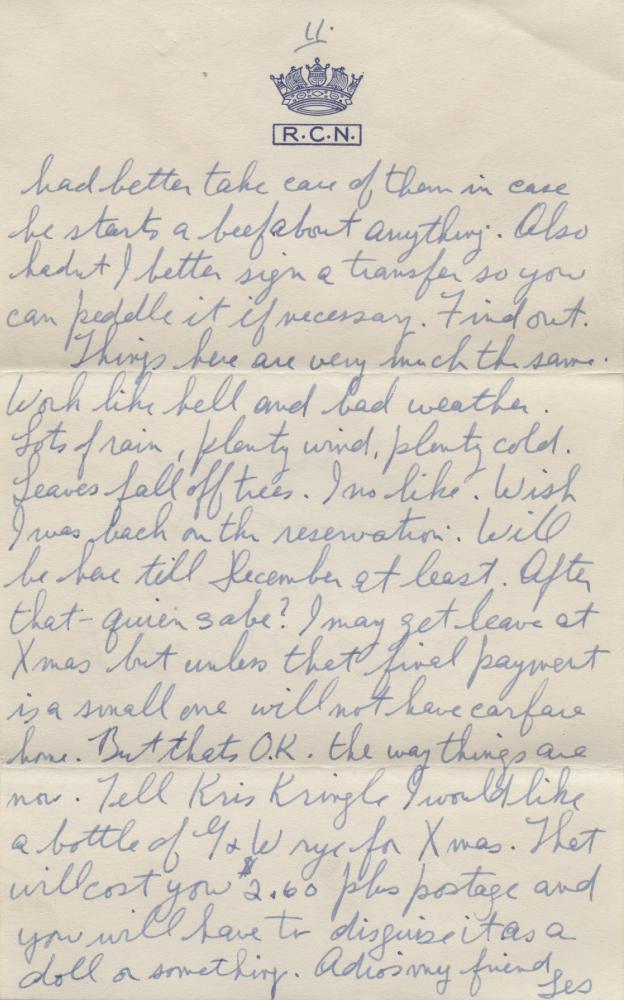 11.
R.C.N.
had better take care of them in case
he starts a beef about anything. Also
hadn't I better sign a transfer so you
can peddle it if necessary. Find out.
Things here are very much the same.
Work like hell and bad weather.
Lots of rain, plenty wind, plenty cold.
Leaves fall off trees. I no like. Wish
I was back on the reservation. Will
be here till December at least. After
that - quien sabe? I may get leave at
Xmas but unless that final payment
is a small one will not have carfare
home. But thats O.K. the way things are
now. Tell Kris Kringle I would like
a bottle of G & W rye for Xmas. That
will cost you $2.60 plus postage and
you will have to disguise it as a
doll or something. Adios my friend
Les